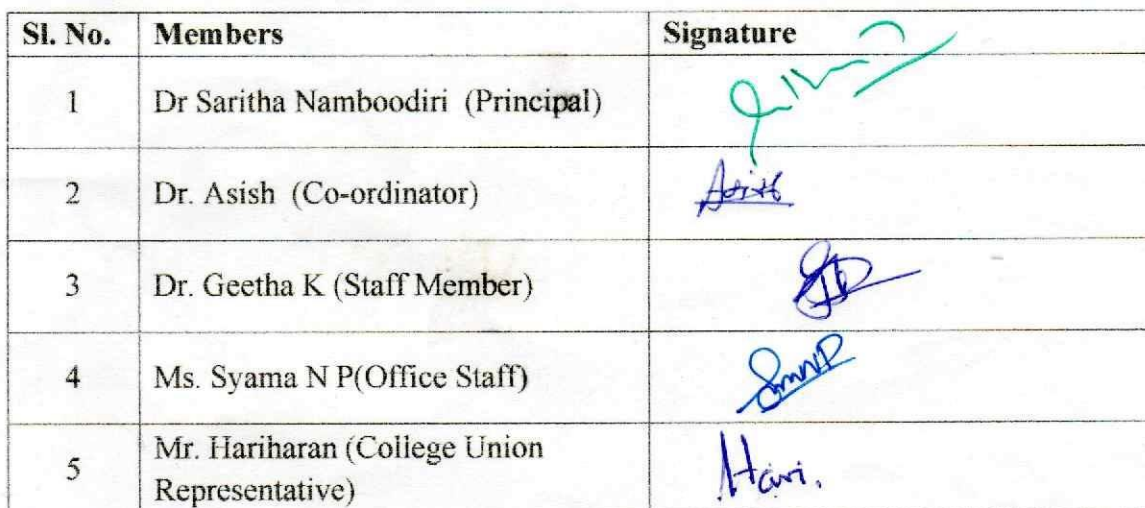 Sl. No. Members Signature
1 Dr Saritha Namboodiri (Principal)
2 Dr. Asish (Co-ordinator) Asish
3 Dr. Geetha K (Staff Member)
4 Ms. Syama N P(Office Staff)
5 Mr. Hariharan (College Union
Representative) Hari.